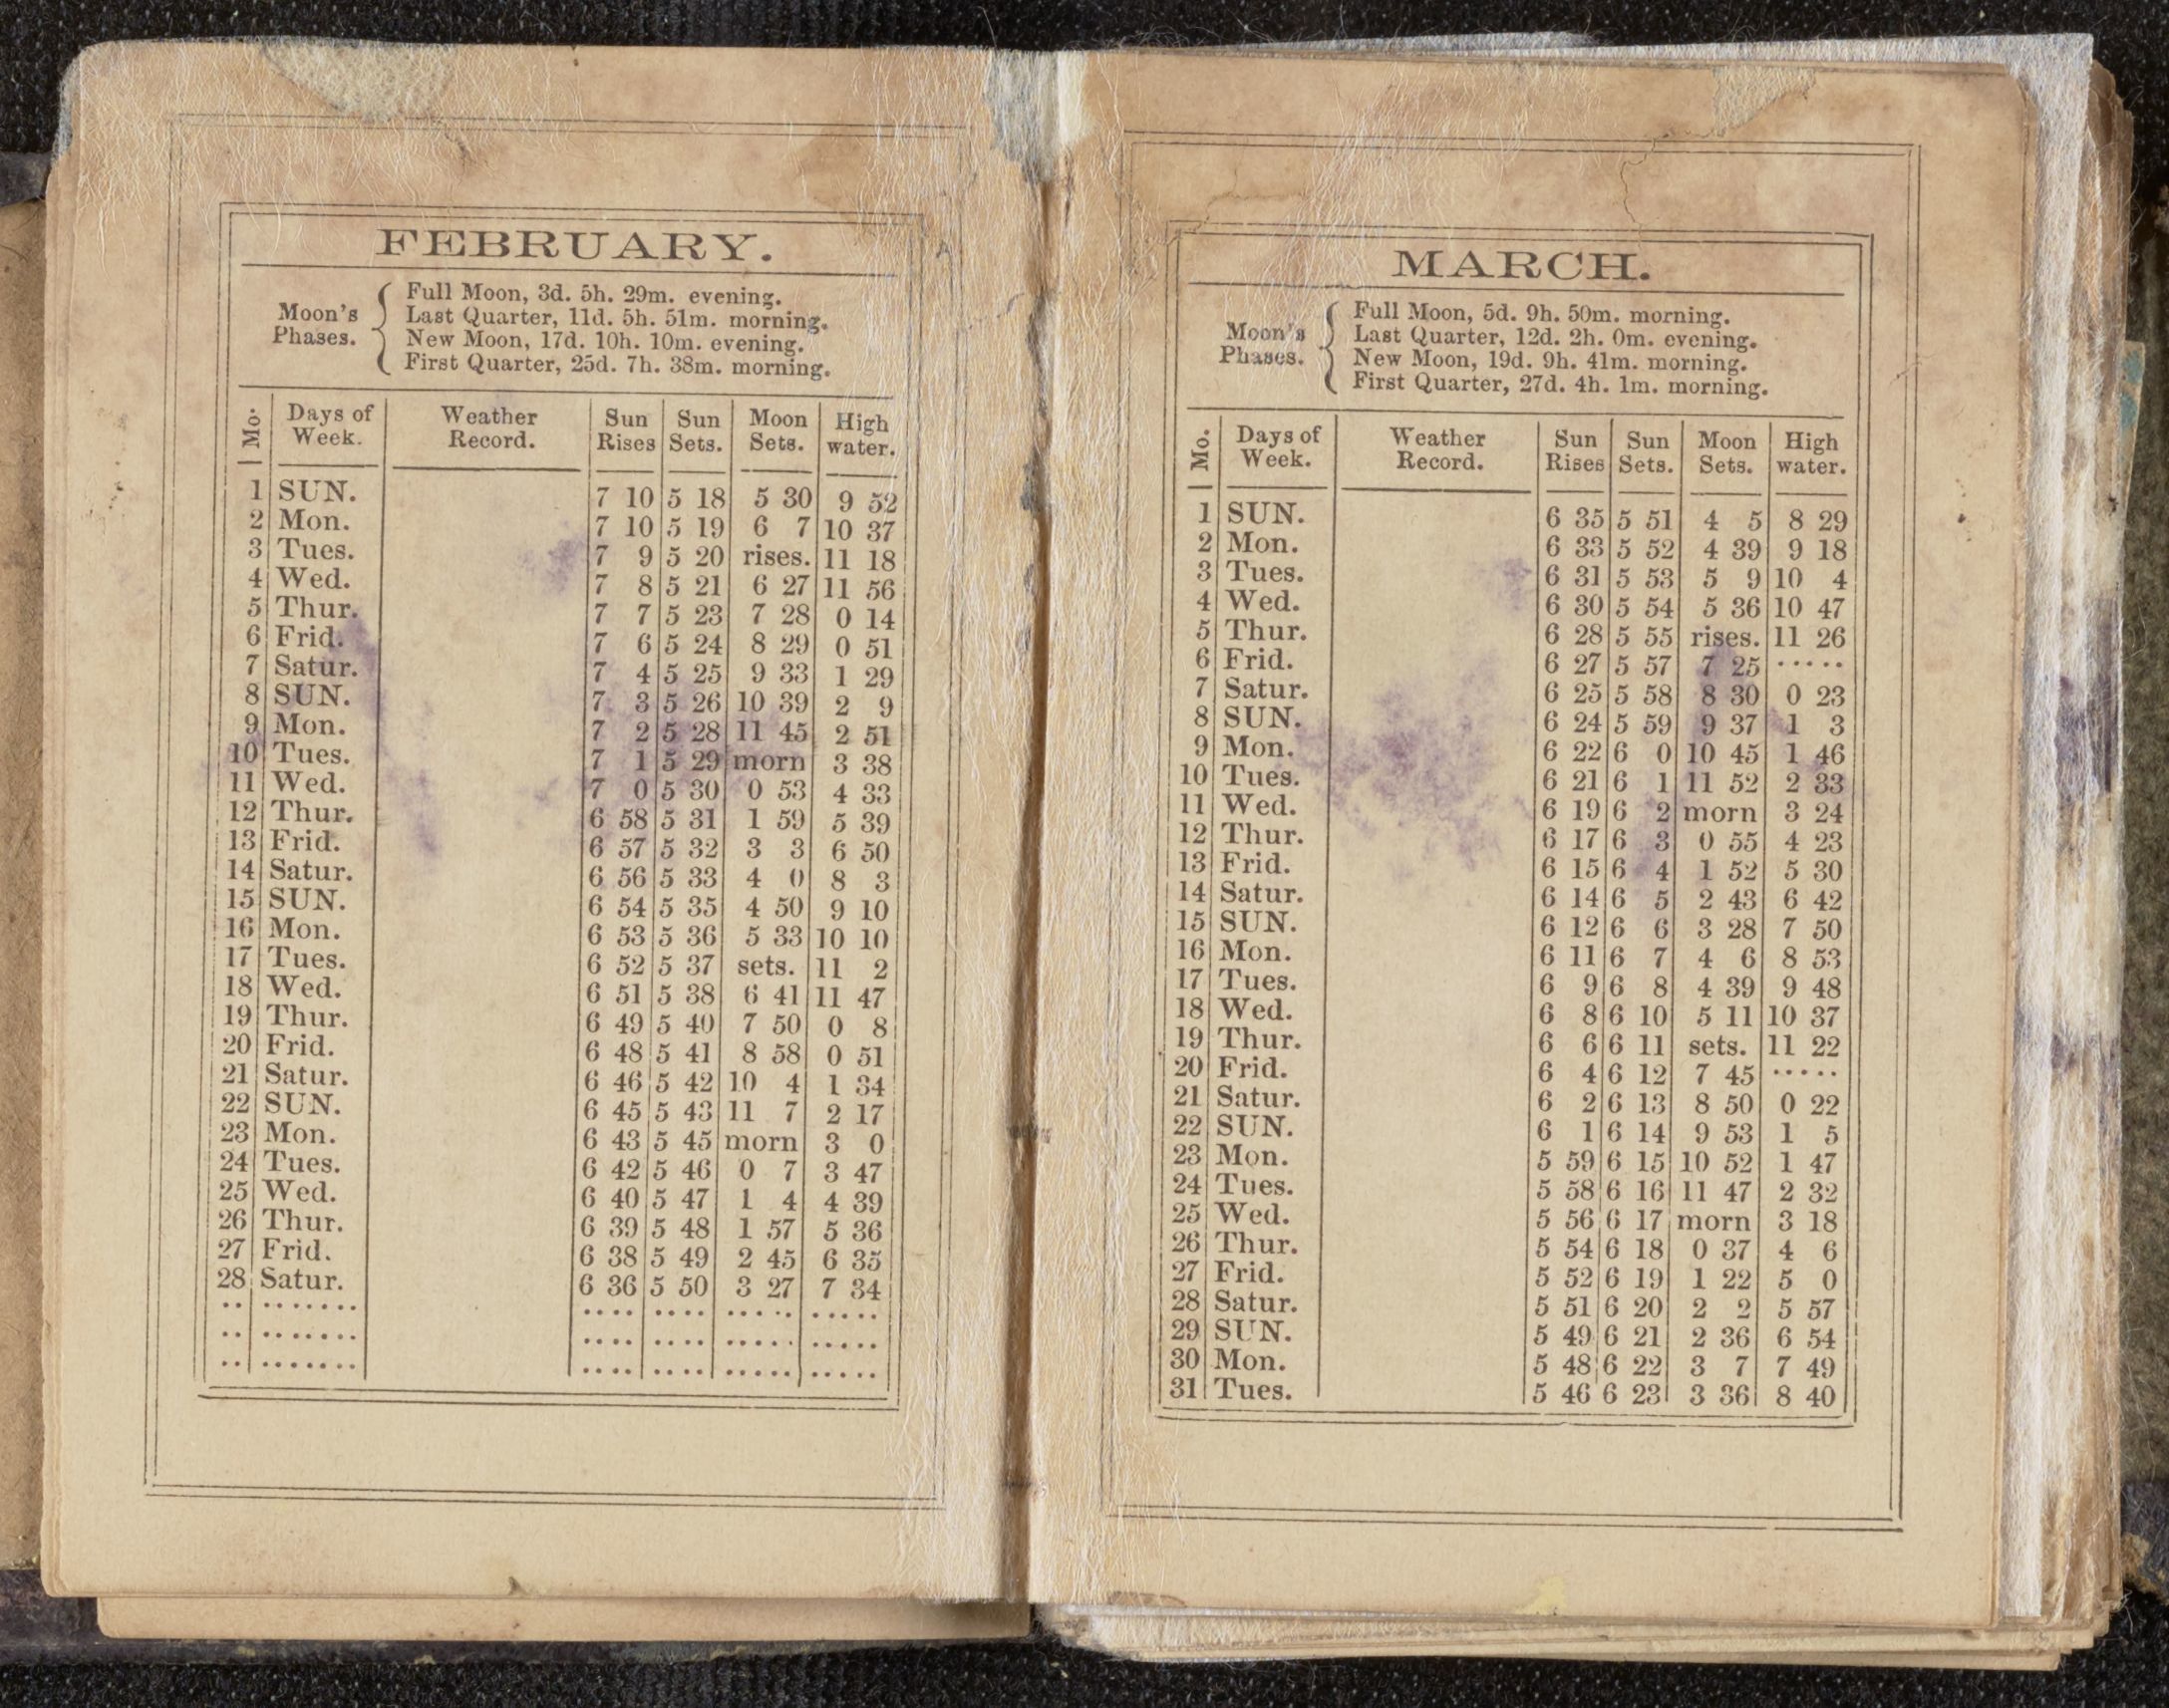 FEBRUARY.
Moon's Phases.
Full Moon, 3d. 5h. 29m. evening.
Last Quarter, 11d. 5h. 51m. morning.
New Moon, 17d. 10h. 10m. evening.
First Quarter, 25d. 7h. 38m. morning.
Mo. Days of Week. Weather Record. Sun Rises Sun Sets. Moon Sets. High water.
1 SUN. 7 10 5 18 5 30 9 52
2 Mon. 7 10 5 19 6 7 10 37
3 Tues. 7 9 5 20 rises. 11 18
4 Wed. 7 8 5 21 6 27 11 56
5 Thur. 7 7 5 23 7 28 0 14
6 Frid. 7 6 5 24 8 29 0 51
7 Satur. 7 4 5 25 9 33 1 29
8 SUN. 7 3 5 26 10 39 2 9
9 Mon. 7 2 5 28 11 45 2 51
10 Tues. 7 1 5 29 morn 3 38
11 Wed. 7 0 5 30 0 53 4 33
12 Thur. 6 58 5 31 1 59 5 39
13 Frid. 6 57 5 32 3 3 6 50
14 Satur. 6 56 5 33 4 0 8 3
15 SUN. 6 54 5 35 4 50 9 10
16 Mon. 6 53 5 36 5 33 10 10
17 Tues. 6 52 5 37 sets. 11 2
18 Wed. 6 51 5 38 6 41 11 47
19 Thur. 6 49 5 40 7 50 0 8
20 Frid. 6 48 5 41 8 58 0 51
21 Satur. 6 46 5 42 10 4 1 34
22 SUN. 6 45 5 43 11 7 2 17
23 Mon. 6 43 5 45 morn 3 0
24 Tues. 6 42 5 46 0 7 3 47
25 Wed. 6 40 5 47 1 4 4 39
26 Thur. 6 39 5 48 1 57 5 36
27 Frid. 6 38 5 49 2 45 6 35
28 Satur. 6 36 5 50 3 27 7 34
.. ....... .... .... ..... .....
.. ....... .... .... ..... .....
.. ....... .... .... ..... .....
MARCH.
Moon's Phases.
Full Moon, 5d. 9h. 50m. morning.
Last Quarter, 12d. 2h. 0m. evening.
New Moon, 19d. 9h. 41m. morning.
First Quarter, 27d. 4h. 1m. morning.
Mo. Days of Week. Weather Record. Sun Rises Sun Sets. Moon Sets. High water.
1 SUN. 6 35 5 51 4 5 8 29
2 Mon. 6 33 5 52 4 39 9 18
3 Tues. 6 31 5 53 5 9 10 4
4 Wed. 6 30 5 54 5 36 10 47
5 Thur. 6 28 5 55 rises. 11 26
6 Frid. 6 27 5 57 7 25 .....
7 Satur. 6 25 5 58 8 30 0 23
8 SUN. 6 24 5 59 9 37 1 3
9 Mon. 6 22 6 0 10 45 1 46
10 Tues. 6 21 6 1 11 52 2 33
11 Wed. 6 19 6 2 morn 3 24
12 Thur. 6 17 6 3 0 55 4 23
13 Frid. 6 15 6 4 1 52 5 30
14 Satur. 6 14 6 5 2 43 6 42
15 SUN. 6 12 6 6 3 28 7 50
16 Mon. 6 11 6 7 4 6 8 53
17 Tues. 6 9 6 8 4 39 9 48
18 Wed. 6 8 6 10 5 11 10 37
19 Thur. 6 6 6 11 sets. 11 22
20 Frid. 6 4 6 12 7 45 .....
21 Satur. 6 2 6 13 8 50 0 22
22 SUN. 6 1 6 14 9 53 1 5
23 Mon. 5 59 6 15 10 52 1 47
24 Tues. 5 58 6 16 11 47 2 32
25 Wed. 5 56 6 17 morn 3 18
26 Thur. 5 54 6 18 0 37 4 6
27 Frid. 5 52 6 19 1 22 5 0
28 Satur. 5 51 6 20 2 2 5 57
29 SUN. 5 49 6 21 2 36 6 54
30 Mon. 5 48 6 22 3 7 7 49
31 Tues. 5 46 6 23 3 36 8 40